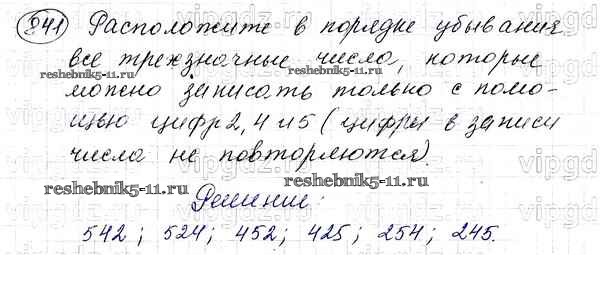 841 Расположите в порядке убывания
все трехзначные числа, которые
можно записать только с помо-
щью цифр 2, 4 и 5 (цифры в записи
числа не повторяются).
Решение:
542; 524; 452; 425; 254; 245.
reshebnik5-11.ru
reshebnik5-11.ru
reshebnik5-11.ru
reshebnik5-11.ru